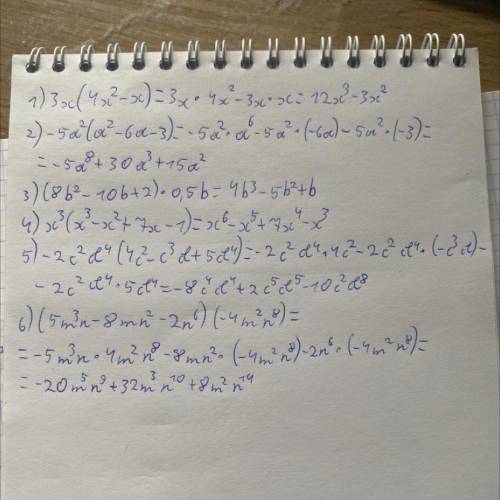 1) 3x(4x²-x)=3x•4x²-3x•x=12x³-3x²
2) -5a²(a²-6a-3)=-5a²•a⁶-5a²•(-6a)-5a²•(-3)=
=-5a⁸+30a³+15a²
3) (8b²-10b+2)•0,5b=4b³-5b²+b
4) x³(x³-x²+7x-1)=x⁶-x⁵+7x⁴-x³
5) -2c²d⁴(4c²-c³d+5d⁴)=-2c²d⁴•4c²-2c²d⁴•(-c³d)-
-2c²d⁴•5d⁴=-8c⁴d⁴+2c⁵d⁵-10c²d⁸
6) (5m³n-8mn²-2n⁶)(-4m²n⁸)=
=-5m³n•4m²n⁸-8mn²•(-4m²n⁸)-2n⁶•(-4m²n⁸)=
=-20m⁵n⁹+32m³n¹⁰+8m²n¹⁴